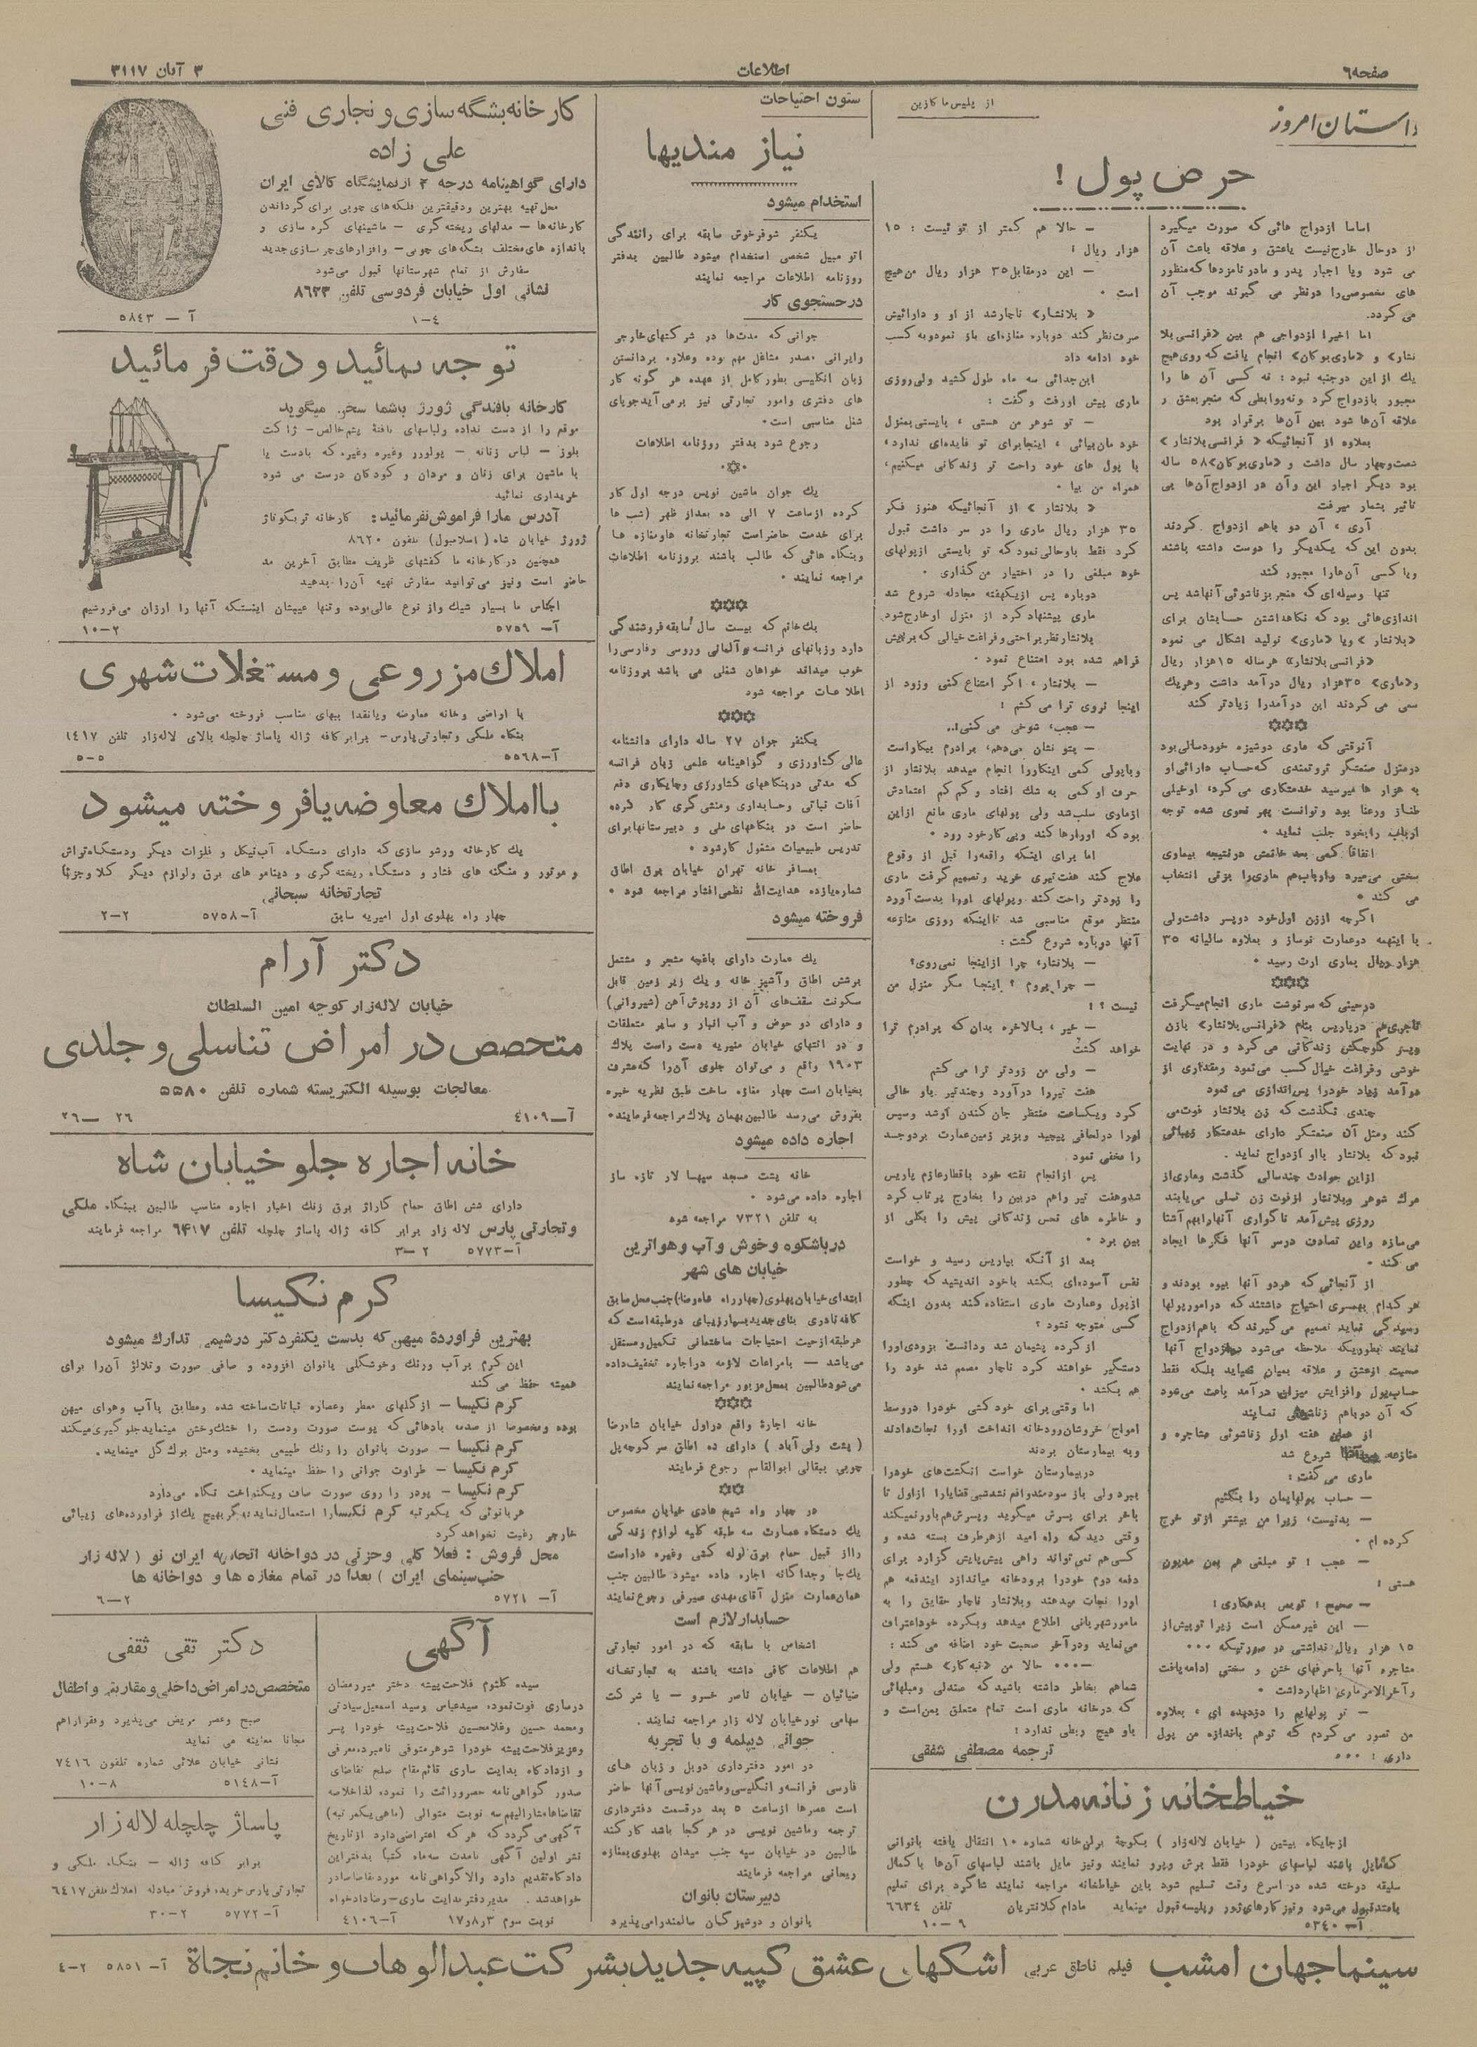 صفحه ۶
اطلاعات
۳ آبان ۳۱۱۷
داستان امروز
از پلیس ماگازین
حرص پول !
اساسا ازدواج هائی که صورت میگیرد
از دو حال خارج نیست یا عشق و علاقه باعث آن
می شود ویا اجبار پدر و مادر نامزدها که منظور
های مخصوصی را در نظر می گیرند موجب آن
می گردد.
اما اخیرا ازدواجی هم بین «فرانسی بلا
نشار» و «ماری بوکان» انجام یافت که روی هیچ
یك از این دو جنبه نبود : نه کسی آن ها را
مجبور بازدواج کرد و نه روابطی که منجر بعشق و
علاقه آن‌ها شود بین آن‌ها برقرار بود
بعلاوه از آنجائیکه « فرانسی بلانشار »
شصت‌وچهار سال داشت و «ماری بوکان» ۵۸ ساله
بود دیگر اجبار این و آن در ازدواج آن‌ها بی
تاثیر بشمار میرفت
آری ، آن دو باهم ازدواج کردند
بدون این که یکدیگر را دوست داشته باشند
ویا کسی آن‌ها را مجبور کند
تنها وسیله‌ای که منجر بزناشوئی آنها شد پس
اندازی‌هائی بود که نگاهداشتن حسابشان برای
«بلانشار» ویا «ماری» تولید اشکال می نمود
«فرانسی بلانشار» هر ساله ۱۵ هزار ریال
و «ماری» ۳۵ هزار ریال درآمد داشت و هریك
سعی می کردند این درآمد را زیادتر کند
آنوقتی که ماری دوشیزه خوردسالی بود
در منزل صنعتگر ثروتمندی که حساب دارائی او
به هزار ها میرسید خدمتکاری می کرد، او خیلی
طناز و رعنا بود و توانست بهر نحوی شده توجه
ارباب را بخود جلب نماید .
اتفاقا کمی بعد خانمش در نتیجه بیماری
سختی می‌میرد و ارباب هم ماری را بزنی انتخاب
می کند .
اگرچه از زن اول خود دو پسر داشت ولی
با اینهمه دو عمارت نوساز و بعلاوه سالیانه ۳۵
هزار ریال بماری ارث رسید .
در حینی که سرنوشت ماری انجام میگرفت
تاجری هم در پاریس بنام «فرانسی بلانشار» با زن
و پسر کوچکش زندگانی می کرد و در نهایت
خوشی و فراغت خیال کسب می‌نمود و مقداری از
درآمد زیاد خود را پس‌اندازی می نمود
چندی نگذشت که زن بلانشار فوت می
کند و مثل آن صنعتگر دارای خدمتکار زیبائی
نبود که بلانشار با او ازدواج نماید .
از این حوادث چند سالی گذشت و ماری از
مرگ شوهر و بلانشار از فوت زن تسلی می‌یابند
روزی پیش آمد ناگواری آنها را بهم آشنا
می‌سازد و این تصادف در سر آنها فکرها ایجاد
می کند .
از آنجائی که هردو آنها بیوه بودند و
هرکدام بهمسری احتیاج داشتند که در امور پولها
رسیدگی نماید تصمیم می گیرند که باهم ازدواج
نمایند بطوریکه ملاحظه می‌شود در ازدواج آنها
صحبت از عشق و علاقه بمیان نمیاید بلکه فقط
حساب پول و افزایش میزان درآمد باعث می‌شود
که آن دو باهم زناشوئی نمایند
از همان هفته اول زناشوئی مشاجره و
شروع شد
ماری می گفت :
— حساب پولهایمان را بکنیم
— بد نیست، زیرا من بیشتر از تو خرج
کرده ام .
— عجب ؛ تو مبلغی هم بمن مدیون
هستی ؛
— صحیح ؛ تو بمن بدهکاری؛
— این غیر ممکن است زیرا تو بیش از
۱۵ هزار ریال نداشتی در صورتیکه ...
مشاجره آنها با حرفهای خشن و سختی ادامه یافت
و آخر الامر ماری اظهار داشت .
— تو پولهایم را دزدیده ای ، بعلاوه
من تصور می‌کردم که تو هم باندازه من پول
داری : ...
— حالا هم کمتر از تو نیست : ۱۵
هزار ریال ؛
— این در مقابل ۳۵ هزار ریال من هیچ
است .
« بلانشار» ناچار شد از او و دارائیش
صرف نظر کند دوباره مغازه‌ای باز نمود و به کسب
خود ادامه داد
این جدائی سه ماه طول کشید ولی روزی
ماری پیش او رفت و گفت :
— تو شوهر من هستی ، بایستی بمنزل
خودمان بیائی ، اینجا برای تو فایده‌ای ندارد ،
با پول های خود راحت تر زندگانی میکنیم ،
همراه من بیا .
« بلانشار » از آنجائیکه هنوز فکر
۳۵ هزار ریال ماری را در سر داشت قبول
کرد فقط باو حالی نمود که تو بایستی از پولهای
خود مبلغی را در اختیار من گذاری .
دوباره پس از یکهفته مجادله شروع شد
ماری پیشنهاد کرد از منزل او خارج شود
بلانشار نظر براحتی و فراغت خیالی که برایش
فراهم شده بود امتناع نمود .
— بلانشار ، اگر امتناع کنی و زود از
اینجا نروی ترا می کشم ؛
— عجب، شوخی می کنی!..
— بتو نشان می‌دهم، برادرم بیکار است
و با پولی کمی اینکار را انجام میدهد بلانشار از
حرف او کمی به شك افتاد و کم کم اعتمادش
از ماری سلب شد ولی پولهای ماری مانع از این
بود که او را رها کند و پی کار خود رود .
اما برای اینکه واقعه را قبل از وقوع
علاج کند هفت‌تیری خرید و تصمیم گرفت ماری
را زودتر راحت کند و پولهای او را بدست آورد
منتظر موقع مناسبی شد تا اینکه روزی منازعه
آنها دوباره شروع گشت :
— بلانشار، چرا از اینجا نمی‌روی؟
— چرا بروم ؟ اینجا مگر منزل من
نیست ؟!
— خیر ، بالاخره بدان که برادرم ترا
خواهد کشت
— ولی من زودتر ترا می کشم
هفت تیر را درآورد و چند تیر باو خالی
کرد و یکساعت منتظر جان کندن او شد و سپس
او را در لحافی پیچید و بزیر زمین عمارت برد و جسد
را مخفی نمود.
پس از انجام نقشه خود با قطار عازم پاریس
شد و هفت تیر را هم در بین راه بخارج پرتاب کرد
و خاطره های نحس زندگانی پیش را بکلی از
بین برد .
بعد از آنکه بپاریس رسید و خواست
نفس آسوده‌ای بکشد با خود اندیشید که چطور
از پول و عمارت ماری استفاده کند بدون اینکه
کسی متوجه نشود ؟
از کرده پشیمان شد و دانست بزودی او را
دستگیر خواهند کرد ناچار مصمم شد خود را
هم بکشد .
اما وقتی برای خودکشی خود را در وسط
امواج خروشان رودخانه انداخت او را نجات دادند
و به بیمارستان بردند
در بیمارستان خواست انگشت‌های خود را
ببرد ولی باز سودمند واقع نشد شبی قضایا را از اول تا
بآخر برای پسرش میگوید و پسرش هم باور نمیکند
وقتی دید که راه امید از هر طرف بسته شده و
کسی هم نمی‌تواند راهی پیش پایش گزارد برای
دفعه دوم خود را برودخانه میاندازد ایندفعه هم
او را نجات میدهند و بلانشار ناچار حقایق را به
مامور شهربانی اطلاع میدهد و بکرده خود اعتراف
می‌نماید و در آخر صحبت خود اضافه می کند :
—... حالا من «تبه‌کار» هستم ولی
شما هم بخاطر داشته باشید که صندلی و مبلهائی
که در خانه ماری است تمام متعلق بمن است و
باو هیچ ربطی ندارد ؛
ترجمه مصطفی شفقی
خیاطخانه زنانه مدرن
از جایگاه پیشین ( خیابان لاله‌زار ) بکوچه برلن خانه شماره ۱۰ انتقال یافته بانوانی
که مایل باشند لباسهای خود را فقط برش و پرو نمایند و نیز مایل باشند لباسهای آن‌ها با کمال
سلیقه دوخته شده در اسرع وقت تسلیم شود باین خیاطخانه مراجعه نمایند شاگرد برای تعلیم
بافتند قبول می‌شود و نیز کارهای ژور و پلیسه قبول مینماید مادام کلانتریان تلفن ۶۶۳۴
آ— ۵۳۴۰ ۹—۱۰
ستون احتیاجات
نیاز مندیها
استخدام میشود
یکنفر شوفر خوش سابقه برای رانندگی
اتومبیل شخصی استخدام میشود طالبین بدفتر
روزنامه اطلاعات مراجعه نمایند
در جستجوی کار
جوانی که مدت‌ها در شرکتهای خارجی
و ایرانی مصدر مشاغل مهم بوده و علاوه بر دانستن
زبان انگلیسی بطور کامل از عهده هر گونه کار
های دفتری و امور تجارتی نیز برمی‌آید جویای
شغل مناسبی است.
رجوع شود بدفتر روزنامه اطلاعات
یك جوان ماشین نویس درجه اول کار
کرده از ساعت ۷ الی ده بعد از ظهر (شب ها
برای خدمت حاضر است تجارتخانه ها و مغازه ها
و بنگاه هائی که طالب باشند بروزنامه اطلاعات
مراجعه نمایند .
یك خانم که بیست سال سابقه فروشندگی
دارد و زبانهای فرانسه و آلمانی و روسی و فارسی را
خوب میداند خواهان شغلی می باشد بروزنامه
اطلاعات مراجعه شود
یکنفر جوان ۲۷ ساله دارای دانشنامه
عالی کشاورزی و گواهینامه علمی زبان فرانسه
که مدتی در بنگاههای کشاورزی و چایکاری دفع
آفات نباتی و حسابداری و منشی گری کار کرده
حاضر است در بنگاههای ملی و دبیرستانها برای
تدریس طبیعیات مشغول کار شود .
بمسافر خانه تهران خیابان برق اطاق
شماره یازده هدایت‌الله نظمی افشار مراجعه شود .
فروخته میشود
یك عمارت دارای باغچه مشجر و مشتمل
برشش اطاق و آشپز خانه و یك زیر زمین قابل
سکونت سقف‌های آن از روپوش آهن (شیروانی)
و دارای دو حوض و آب انبار و سایر متعلقات
و در انتهای خیابان منیریه دست راست پلاك
۱۹۰۳ واقع و می‌توان جلوی آن را که مشرف
بخیابان است چهار مغازه ساخت طبق نظریه خبره
بفروش می‌رسد طالبین بهمان پلاك مراجعه فرمایند.
اجاره داده میشود
خانه پشت مسجد سپهسالار تازه ساز
اجاره داده می‌شود .
به تلفن ۷۳۲۱ مراجعه شود
در باشکوه و خوش و آب و هواترین
خیابان های شهر
ابتدای خیابان پهلوی (چهارراه شاهرضا) جنب محل سابق
کافه نادری بنای جدید بسیار زیبای دو طبقه است که
هر طبقه از حیث احتیاجات ساختمانی تکمیل و مستقل
می‌باشد — با مراعات لازمه در اجاره تخفیف داده
می‌شود طالبین بمحل مزبور مراجعه نمایند
خانه اجاره واقع در اول خیابان شاهرضا
( پشت ولی آباد ) دارای ده اطاق سر کوچه پل
چوبی ببقالی ابوالقاسم رجوع فرمایند
در چهار راه شیخ هادی خیابان مخصوص
یك دستگاه عمارت سه طبقه کلیه لوازم زندگی
را از قبیل حمام برق لوله کشی و غیره دارا است
یك جا و جداگانه اجاره داده میشود طالبین جنب
همان عمارت منزل آقای مهدی صیرفی رجوع نمایند
حسابدار لازم است
اشخاص با سابقه که در امور تجارتی
هم اطلاعات کافی داشته باشند به تجارتخانه
ضیائیان — خیابان ناصر خسرو — یا شرکت
سهامی نور خیابان لاله زار مراجعه نمایند .
جوانی دیپلمه و با تجربه
در امور دفترداری دوبل و زبان های
فارسی فرانسه و انگلیسی و ماشین نویسی آنها حاضر
است عصرها از ساعت ۵ بعد در قسمت دفترداری
ترجمه و ماشین نویسی در هر کجا باشد کار کند
طالبین در خیابان سپه جنب میدان پهلوی بمغازه
ریحانی مراجعه فرمایند
دبیرستان بانوان
بانوان و دوشیزگان سالمند را می‌پذیرد
کارخانه بشگه سازی و نجاری فنی
علی زاده
دارای گواهینامه درجه ۲ از نمایشگاه کالای ایران
محل تهیه بهترین و دقیقترین فلکه‌های چوبی برای گرداندن
کارخانه‌ها — مدلهای ریخته گری — ماشینهای کره سازی و
باندازه های مختلف بشگه های چوبی — و افزارهای چرمسازی جدید
سفارش از تمام شهرستانها قبول می‌شود
نشانی اول خیابان فردوسی تلفن ۸۶۲۳
۴—۱ آ— ۵۸۴۳
توجه نمائید و دقت فرمائید
کارخانه بافندگی ژورژ باشما سخن میگوید
موقع را از دست نداده و لباسهای بافته پشم خالص — ژاکت
بلوز — لباس زنانه — پولوور و غیره و غیره که بادست یا
با ماشین برای زنان و مردان و کودکان درست می شود
خریداری نمائید
آدرس ما را فراموش نفرمائید : کارخانه تریکوتاژ
ژورژ خیابان شاه ( اسلامبول) تلفون ۸۶۲۰
همچنین در کارخانه ما کفشهای ظریف مطابق آخرین مد
حاضر است و نیز می‌توانید سفارش تهیه آن را بدهید
اجناس ما بسیار شیك و از نوع عالی بوده و تنها عیبشان اینستکه آنها را ارزان می‌فروشیم
آ— ۵۷۵۹ ۲—۱۰
املاك مزروعی و مستغلات شهری
با اراضی و خانه معاوضه و یا نقدا ببهای مناسب فروخته می‌شود .
بنگاه ملکی و تجارتی پارس- برابر کافه ژاله پاساژ چلچله بالای لاله‌زار تلفن ۶۴۱۷
آ— ۵۵۶۸ ۵—۵
با املاك معاوضه یا فروخته میشود
یك کارخانه ورشو سازی که دارای دستگاه آب نیکل و فلزات دیگر و دستگاه تراش
و موتور و منگنه های فشار و دستگاه ریخته گری و دینامو های برق و لوازم دیگر کلا و جزئا
تجارتخانه سبحانی
چهار راه پهلوی اول امیریه سابق آ— ۵۷۵۸ ۲—۲
دکتر آرام
خیابان لاله‌زار کوچه امین السلطان
متخصص در امراض تناسلی و جلدی
معالجات بوسیله الکتریسته شماره تلفن ۵۵۸۰
آ— ۴۱۰۹ ۲۶—۲۶
خانه اجاره جلو خیابان شاه
دارای شش اطاق حمام گاراژ برق زنك اخبار اجاره مناسب طالبین ببنگاه ملکی
و تجارتی پارس لاله زار برابر کافه ژاله پاساژ چلچله تلفن ۶۴۱۷ مراجعه فرمایند
آ— ۵۷۷۳ ۲—۳
کرم نکیسا
بهترین فرآورده میهن که بدست یکنفر دکتر در شیمی تدارك میشود
این کرم برآب و رنك و خوشگلی بانوان افزوده و صافی صورت و تلالؤ آن را برای
همیشه حفظ می کند
کرم نکیسا — از گلهای معطر و عصاره نباتات ساخته شده و مطابق با آب و هوای میهن
بوده و مخصوصا از صدمه بادهائی که پوست صورت و دست را خشك و خشن مینماید جلوگیری میکند
کرم نکیسا — صورت بانوان را رنك طبیعی بخشیده و مثل برك گل مینماید.
کرم نکیسا — طراوت جوانی را حفظ مینماید .
کرم نکیسا — پودر را روی صورت صاف و یکنواخت نگاه می‌دارد
هر بانوئی که یکمرتبه کرم نکیسا را استعمال نماید دیگر بهیچ یك از فرآورده‌های زیبائی
خارجی رغبت نخواهد کرد
محل فروش : فعلا کلی و جزئی در دواخانه اتحادیه ایران نو ( لاله زار
جنب سینمای ایران ) بعدا در تمام مغازه ها و دواخانه ها
آ— ۵۷۲۱ ۲—۶
آگهی
سیده کلثوم فلاحت‌پیشه دختر میر رمضان
در ساری فوت نموده، سید عباس و سید اسمعیل سیادتی
و محمد حسین و غلامحسین فلاحت‌پیشه خود را پسر
و عزیز فلاحت‌پیشه خود را شوهر متوفی نامبرده معرفی
و از دادگاه بدایت ساری قائم مقام صلح تقاضای
صدور گواهی نامه حصر وراثت را نموده لذا خلاصه
تقاضا ها مشارالیهم سه نوبت متوالی (ماهی یکمرتبه)
آگهی می گردد که هر که اعتراضی دارد از تاریخ
نشر اولین آگهی تا مدت سه ماه کتبا بدفتر این
دادگاه تقدیم دارد والا گواهی نامه مورد تقاضا صادر
خواهد شد . مدیر دفتر بدایت ساری— رضا دادخواه
نوبت سوم ۳ر۸ر۱۷ آ— ۴۱۰۶
دکتر تقی ثقفی
متخصص در امراض داخلی و مقاربتی و اطفال
صبح و عصر مریض می‌پذیرد و فقرا را هم
مجانا معاینه می نماید
نشانی خیابان علائی شماره تلفون ۷۴۱۶
آ— ۵۱۴۸ ۸—۱۰
پاساژ چلچله لاله زار
برابر کافه ژاله — بنگاه ملکی و
تجارتی پارس خرید، فروش مبادله املاك تلفن ۶۴۱۷
آ— ۵۷۷۲ ۲—۳۰
سینما جهان امشب فیلم ناطق عربی اشکهای عشق کپیه جدید بشرکت عبدالوهاب و خانم نجاة آ— ۵۸۵۱ ۲—۴